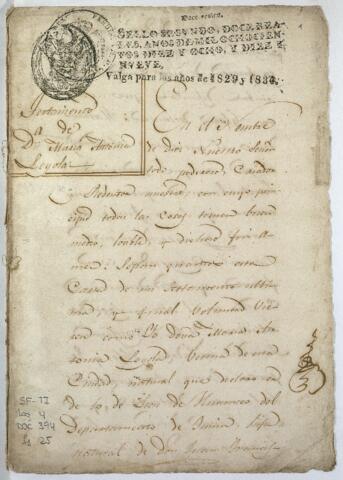 Doce reales.
SELLO SEGUNDO, DOCE REA-
LES, AÑOS DE MIL OCHOCIEN-
TOS DIEZ Y OCHO, Y DIEZ Y
NUEVE.
Valga para los años de 1829 y 1830.
Testamento
de
Dª Maria Antonia
Loyola
En el Nombre
de Dios Nuestro Señor
todo poderoso, Criador
y Redentor nuestro, con cuyo prin-
cipio todas las cosas tienen buen
medio, loable, y dichoso fin. A-
men: Sepan quantos esta
Carta de mi Testamento ulti-
ma, y final voluntad vie-
ren como Yo doña Maria An-
tonia Loyola, Vecina de esta
Ciudad, natural que declaro ser
de la de Leon de Huanuco del
Departamento de Junin, hija
natural de Don
SF-TI
Leg 4
DOC 394
fs 25